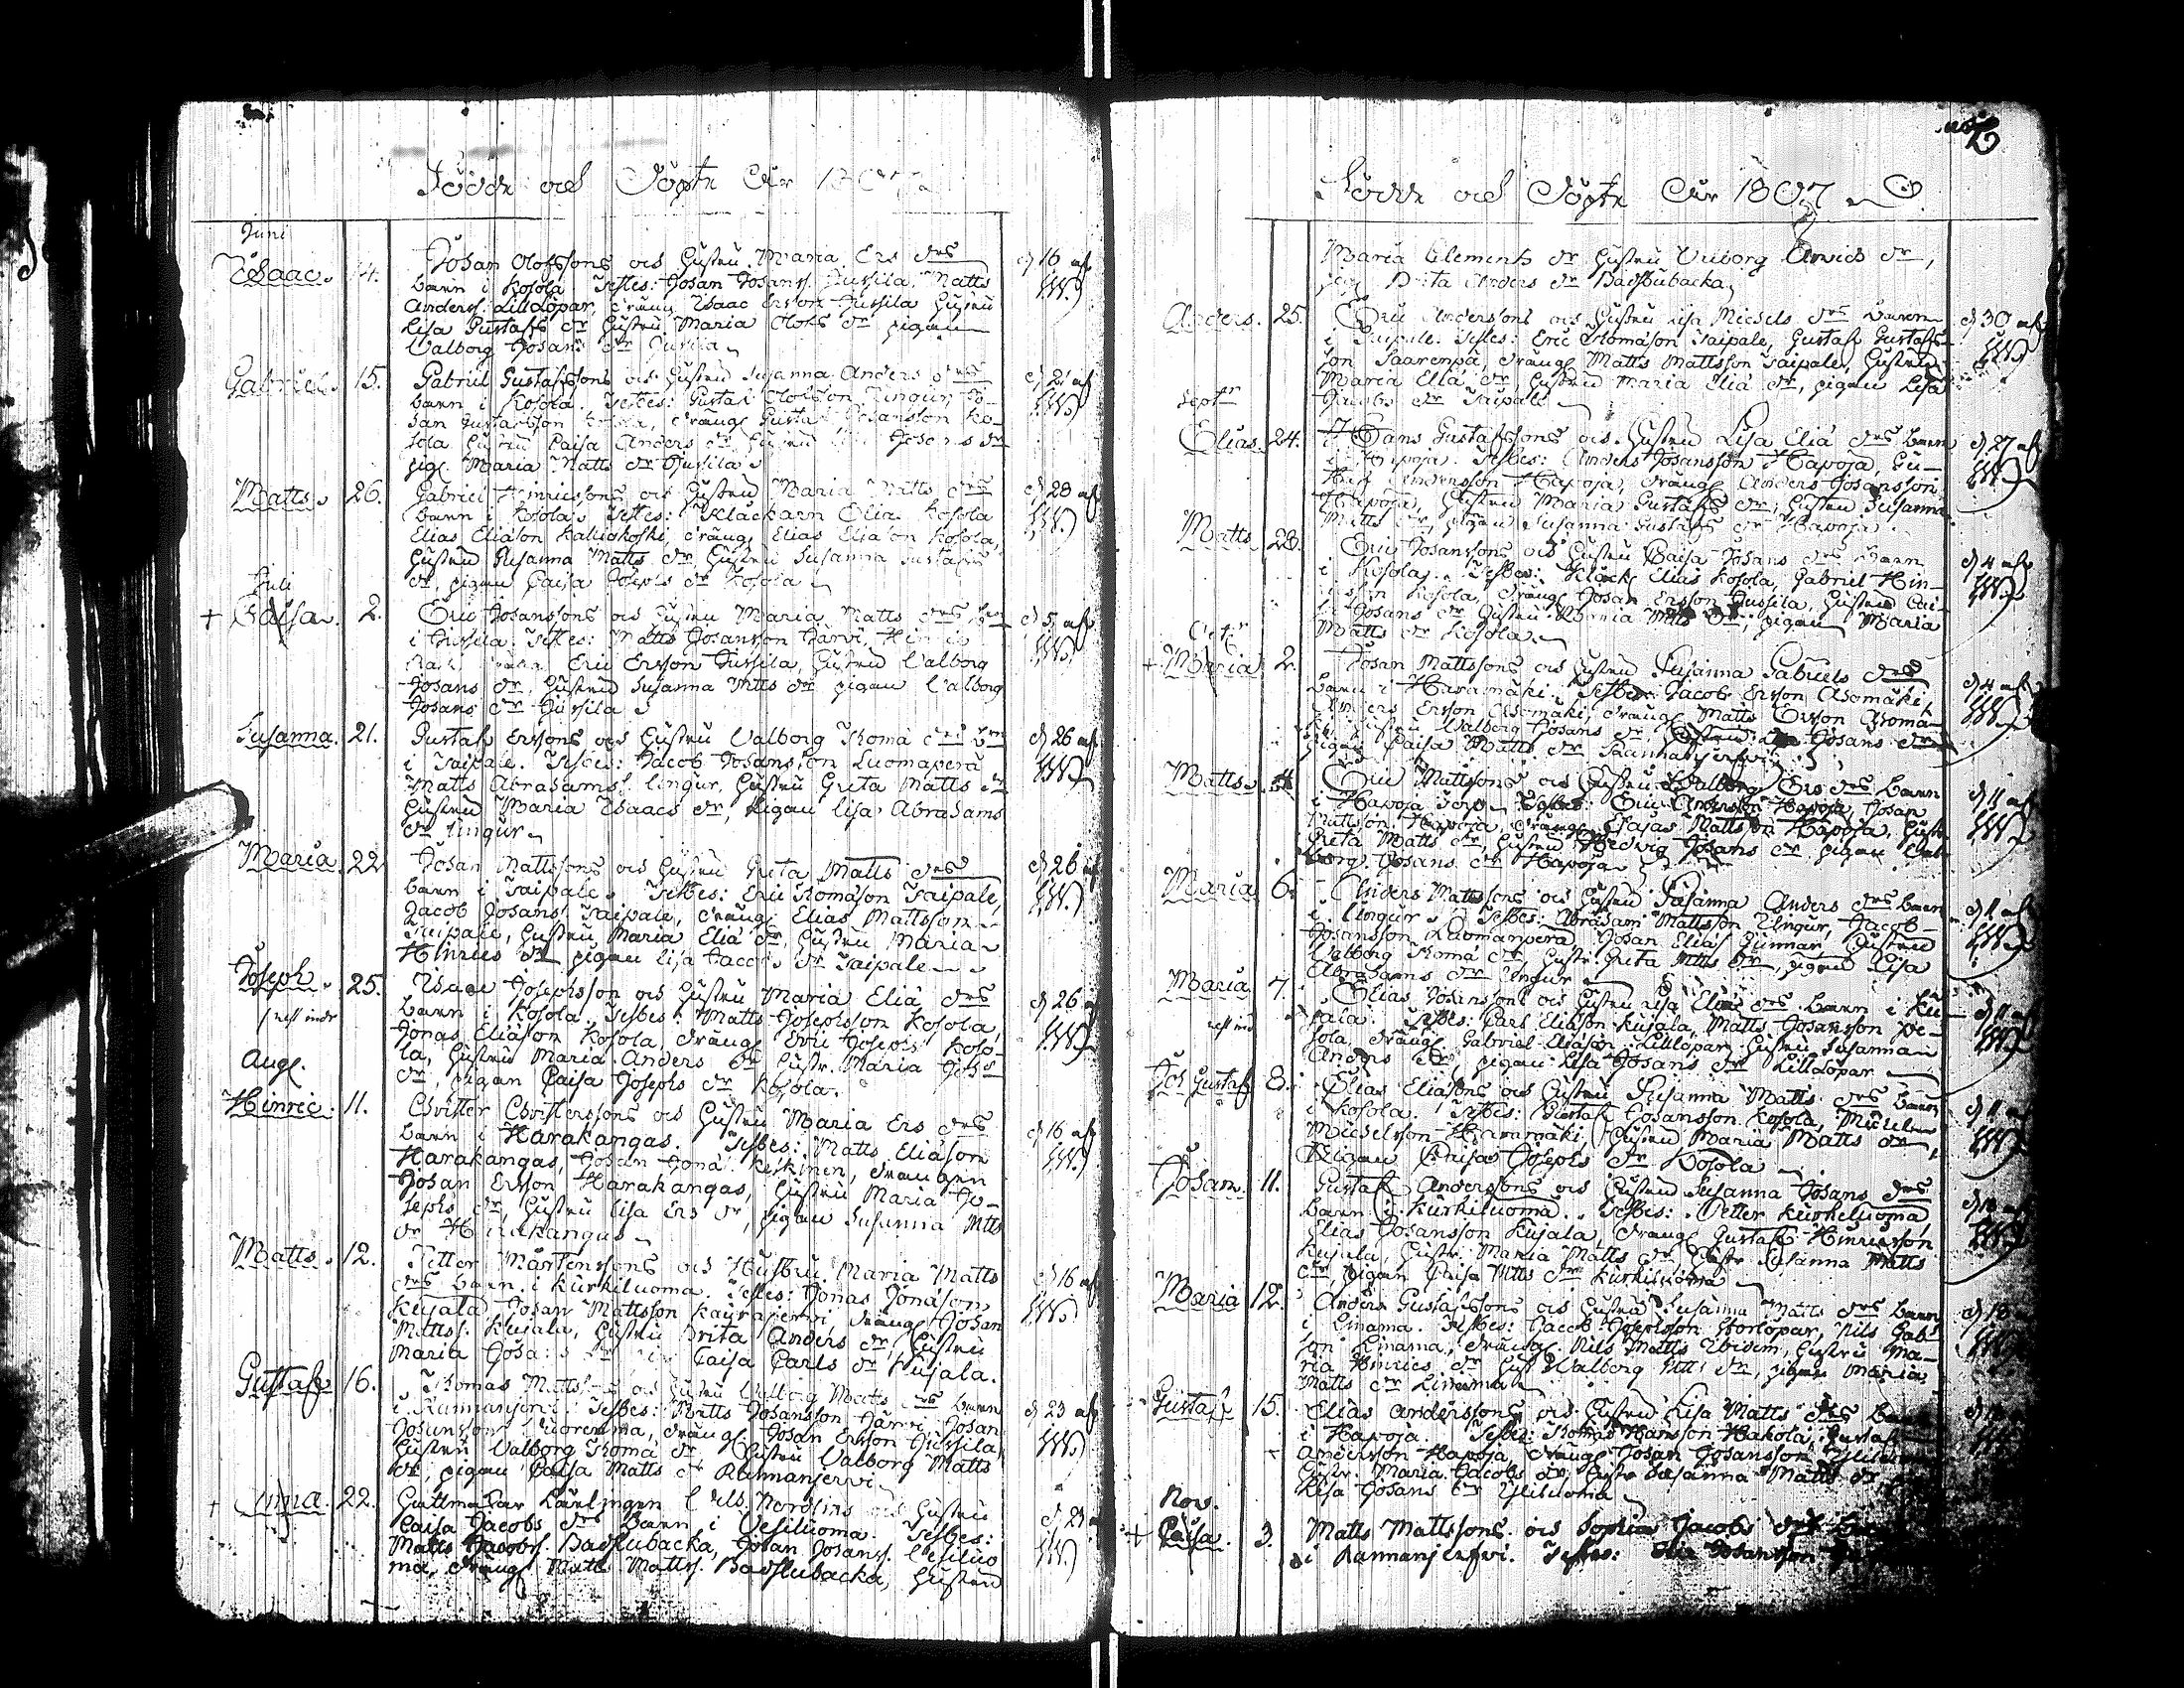 Födde och Döpte År 1807
Juni
Isaac. 14. Johan Olofssons och Hustru Maria Ers drs d. 16 af
barn i Kosola. Testes: Johan Johanss. Jussila, Matts
Anderss. Lilldopar, dräng Isaac Ersson Jussila Hustru
Lisa Gustafs dr Hustru Maria Olofs dr pigan
Valborg Johans dr Jussila
Gabriel. 15. Gabriel Gustafssons och Hustru Susanna Anders drs d. 21 af
barn i Kosola. Testes: Gustaf Olofsson Lingur, Jo-
han Gustafsson Kosola, dräng Gustaf Johansson Ko-
sola Hustru Caisa Anders dr Hustru Johans dr
pig. Maria Matts dr Jussila
Matts. 26. Gabriel Hinricssons och Hustru Maria Matts drs d. 28 af
barn i Kosola. Testes: Klåckarn Elia Kosola
Elias Eliason Kaliokoski, dräng Elias Eliason Kosola,
Hustru Susanna Matts dr Hustru Susanna Gustafs
dr, pigan Caisa Josephs dr Kosola
Juli
+ Caisa. 2. Eric Johanssons och Hustru Maria Matts drs barn d. 5 af
i Jussila. Testes: Matts Johansson Harvi,
Eric Ersson Jussila, Hustru Valborg
Johans dr, Hustru Susanna Mtts dr pigan Valborg
Johans dr Jussila
Susanna. 21. Gustaf Erssons och Hustru Valborg Thoma drs d. 26 af
i Taipale. Testes: Jacob Johansson Luomapera
Matts Abrahams. Lingur, Hustru Greta Matts dr
Hustru Maria Isaacs dr, pigan Lisa Abrahams
dr Lingur
Maria 22. Johan Mattssons och Hustru Greta Matts drs d. 26 af
barn i Taipale. Testes: Eric Thomason Taipale,
Jacob Johans. Taipale, dräng Elias Mattsson
Taipale, Hustru Maria Elia dr, Hustru Maria
Hinrics dr pigan Lisa Jacobs dr Taipale
Joseph. 25. Isaac Josephsson och Hustru Maria Elia drs d. 26
barn i Kosola. Testes: Matts Josephsson Kosola,
Jonas Eliason Kosola, dräng Eric Josephs Koso-
la, Hustru Maria Anders dr Hustr. Maria Johs
dr, pigan Caisa Josephs dr Kosola.
Aug.
Hinric. 11. Christer Christerssons och Hustru Maria Ers drs d. 16 af
barn i Harakangas. Testes: Matts Eliason
Harakangas, Johan Jona. Keskinen, drängen
Johan Ersson Harakangas, Hustru Maria Jo-
sephs dr, Hustru Lisa Ers dr, pigan Susanna Mtts
dr Harakangas
Matts. 12. Petter Mårtenssons och Hustru Maria Matts d. 16 af
drs barn i Kurkiluoma. Testes: Jonas Jonason
Kujala, Johan Mattsson Kaurajervi, dräng Johan
Mattss. Kujala, Hustru Brita Anders dr, Hustru
Maria Caisa Carls dr Kujala.
Gustaf 16. Thomas Mattssons och Hustru Valborg Matts drs barn d. 23 af
i Rannanjervi. Testes: Matts Johansson Jarvi, Johan
Johansson Luorenma, dräng Johan Ersson Jussila,
Hustru Valborg Thoma dr Hustru Valborg Matts
dr, pigan Caisa Matts dr Rannanjervi
+ Anna. 22. Norlins och Hustru
Caisa Jacobs drs Barn i Vesiluoma. Testes:
Matts Jacobs. Badstubacka, Johan Johans. Vesiluo
ma, dräng Matts Matts. Badstubacka, Hustru
Födde och Döpte År 1807
Maria Clements dr Hustru Walborg Arvids dr,
pig. Brita Anders dr Badstubacka
Anders. 25. Eric Anderssons och Hustru Lisa Michels drs barn d. 30 af
i Taipale. Testes: Eric Thomason Taipale, Gustaf Gustafs-
son Saarenpä, dräng Matts Mattsson Taipale, Hustru
Maria Elia dr, Hustru Maria Elia dr, pigan Lisa
Jacobs dr Taipale
Septr
Elias. 24. Hans Gustafssons och Hustru Lisa Elia drs barn d. 27 af
i Hapoja. Testes: Anders Johansson Hapoja, Gu-
staf Andersson Hapoja, dräng Anders Johansson
Hapoja, Hustru Maria Gustafs dr, Hustru Susanna
Matts dr, pigan Susanna Gustafs dr Hapoja
Matts. 28. Eric Johanssons och Hustru Caisa Johans drs barn d. 4 af
i Kosola. Testes: Klåck. Elias Kosola, Gabriel Hin-
ricsson Kosola, dräng Johan Ersson Jussila, Hustru Cai-
sa Johans dr Hustru Maria Mtts dr, pigan Maria
Matts dr Kosola
Octr
+ Maria 2. Johan Mattssons och Hustru Susanna Gabriels drs d. 4 af
barn i Haramäki. Testes: Jacob Ersson Asomäki,
Anders Ersson Asomäki, dräng Matts Ersson Asomä-
ki, Hustru Walborg Johans dr Hustru Johans dr
pigan Caisa Matts dr
Matts. 4. Eric Mattssons och Hustru Walborg Ers drs barn d. 11 af
i Hapoja Testes: Eric Andersson Hapoja, Johan
Mattsson Hapoja, dräng Esaias Mattsson Hapoja, Hustr
Greta Matts dr, Hustru Hedvig Johans dr pigan Wal-
borg Johans dr Hapoja
Maria 6. Anders Mattssons och Hustru Susanna Anders drs barn d. 11 af
i Lingur. Testes: Abraham Mattsson Lingur, Jacob
Johansson Luomanpera Johan Elias Gunnar Hustru
Walborg Thoma dr, Hustr. Greta Mtts dr, pigan Lisa
Abrahams dr Lingur
Maria 7. Elias Johanssons och Hustru Lisa Elia drs barn i Ku- d. 11 af
jala. Testes: Carl Eliason Kujala, Matts Johansson
sola, dräng Gabriel Lilldopar, Hustru Susanna
Anders dr, pigan Lisa Johans dr Lilldopar
Joh Gustaf 8. Elias Eliasons och Hustru Susanna Matts drs barn d. 11 af
i Kosola. Testes: Gustaf Johansson Kosola, Michel
Michelsson Haramäki, Hustru Maria Matts dr,
Pigan Caisa Josephs dr Kosola
Johan. 11. Gustaf Anderssons och Hustru Susanna Johans drs d. 18 af
barn i Kurkiluoma. Testes: Petter Kurkiluoma
Elias Johansson Kujala, dräng Gustaf Hinricsson
Kujala, Hustr. Maria Matts dr, Hustr Susanna Matts
dr, pigan Caisa Mtts dr Kurkiluoma
Maria 12. Anders Gustafssons och Hustru Susanna Matts drs barn d. 18
i Linama. Testes: Jacob Josephsson Storlopar, Nils Gab-
son Linama, dräng Nils Matts Ibidem, Hustru Ma-
ria Hinrics dr Hust Walborg Mtts dr, pigan Maria
Matts dr Linama
Gustaf 15. Elias Anderssons och Hustru Lisa Matts drs barn
i Hapoja. Testes: Thomas Hansson Hakola, Gustaf
Andersson Hapoja, dräng Johan Johansson
Hustr. Maria Jacobs dr, Hustr Susanna Matts dr
Lisa Johans dr Yliluoma
Nov.
+ Caisa. 3. Matts Mattssons och Sophia Jacobs drs
i Rannanjervi. Testes: Johansson